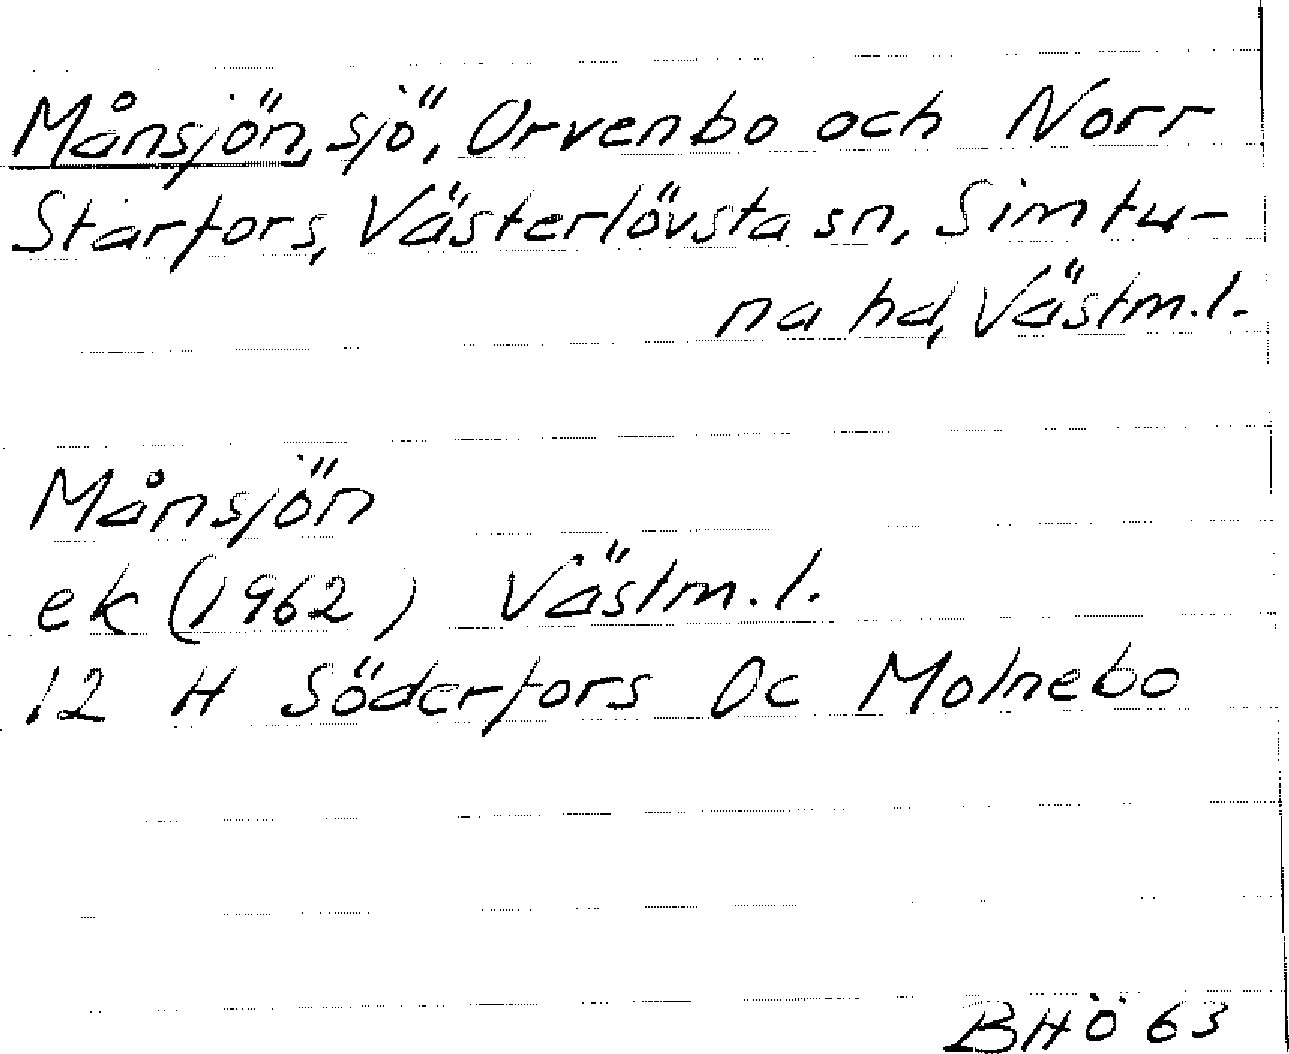 Månsjön, sjö, Orvenbo och Norr
Starfors, Västerlövsta sn, Simtu-
na hd, Västm.l.
Månsjön
ek (1962) Västm.l.
12 H Söderfors 0c Molnebo
BHÖ 63